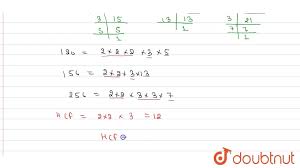 3 | 15 13 | 13 3 | 21
5 | 5 1 7 | 7
1 1
120 = 2×2×2×3×5
156 = 2×2×3×13
256 = 2×2×3×3×7
HCF = 2×2 × 3 = 12
HCF
doubtnut